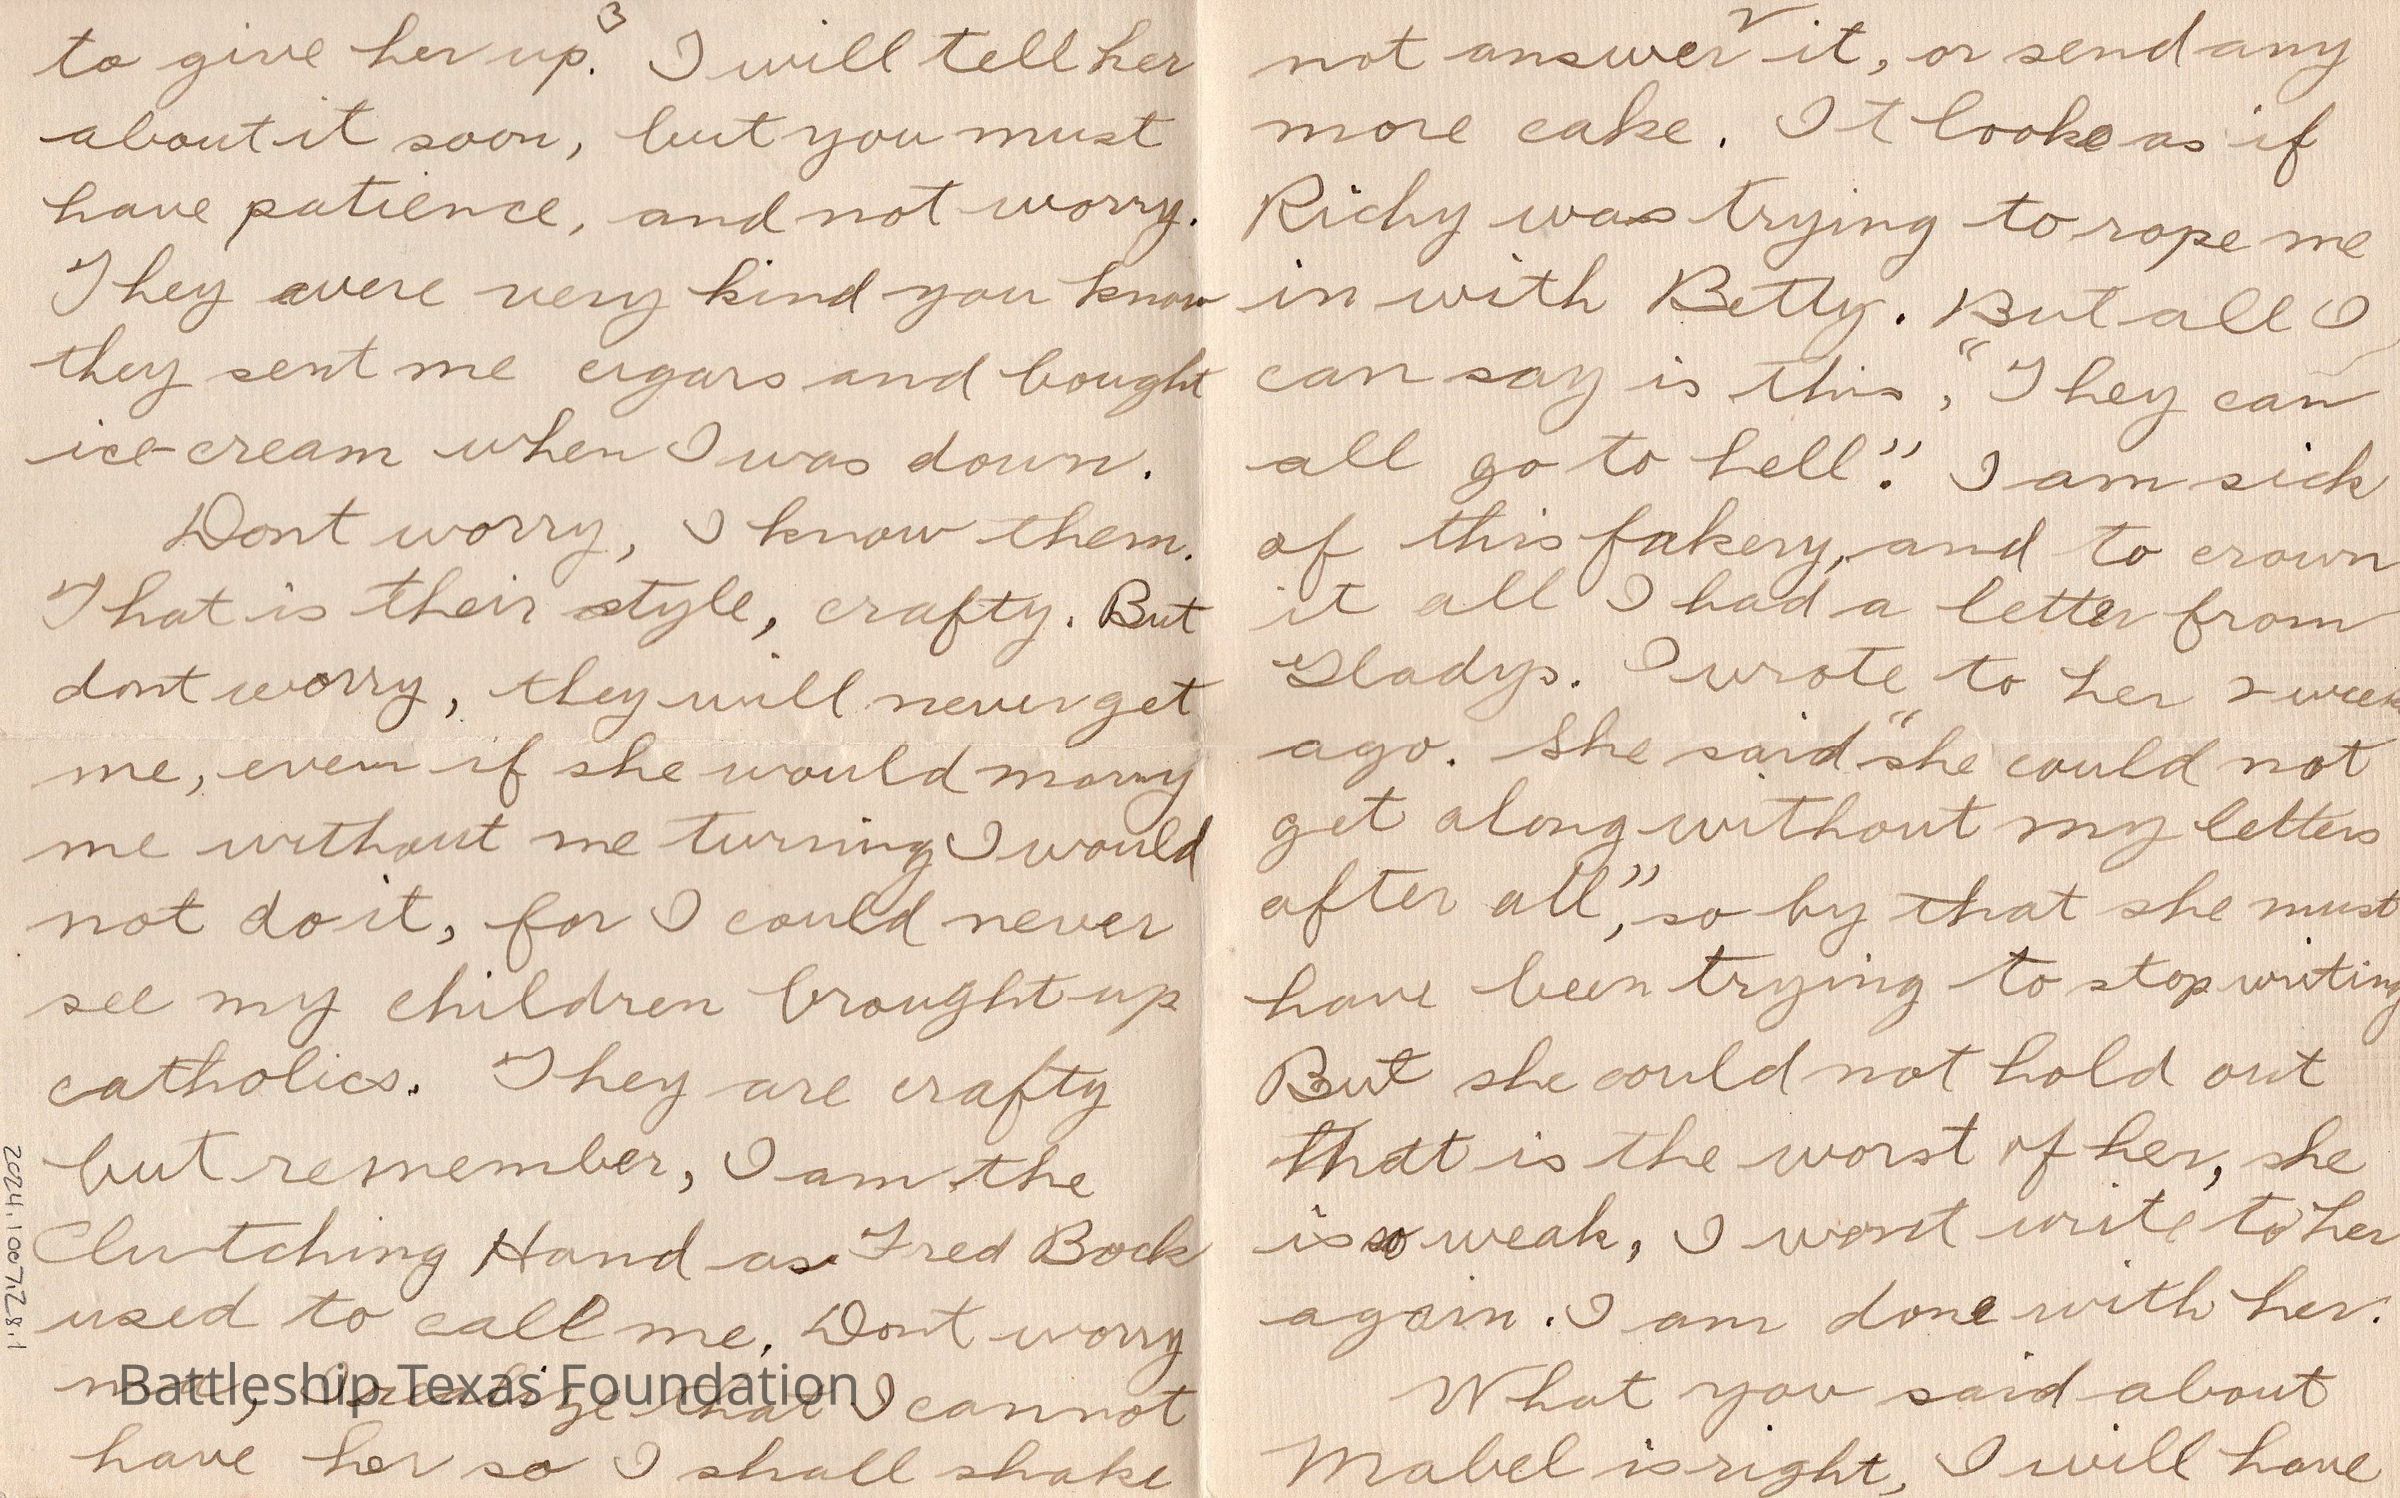 2
not answer it, or send any
more cake. It looks as if
Richy was trying to rope me
in with Betty. But all I
can say is this, "They can
all go to hell". I am sick
of this fakery, and to crown
it all I had a letter from
Gladys. I wrote to her 2 week
ago. She said "she could not
get along without my letters
after all", so by that she must
have been trying to stop writing
But she could not hold out
that is the worst of her, she
is so weak, I wont write to her
again. I am done with her.
What you said about
Mabel is right, I will have
3
to give her up. I will tell her
about it soon, but you must
have patience, and not worry.
They were very kind you know
they sent me cigars and bought
ice-cream when I was down.
Dont worry, I know them.
That is their style, crafty. But
dont worry, they will never get
me, even if she would marry
me without me turning I would
not do it, for I could never
see my children brought up
catholics. They are crafty
but remember, I am the
Clutching Hand as Fred Bock
used to call me. Dont worry
I realize that I cannot
have her so I shall shake
Battleship Texas Foundation
2024.1.007.128.1